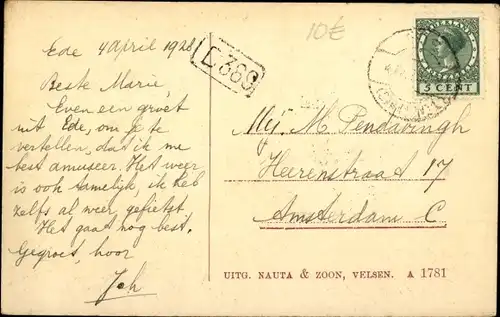 Ede 4 April 1928
Beste Marie,
Even een groet
uit Ede, om je te
vertellen, dat ik me
best amuseer. Het weer
is ook tamelijk, ik heb
zelfs al weer gefietst
Het gaat nog best.
Gegroet, hoor
Joh
10€
NEDERLAND
5 CENT
Mej. M. Pendavingh
Heerenstraat 17
Amsterdam C
UITG. NAUTA & ZOON, VELSEN. A 1781